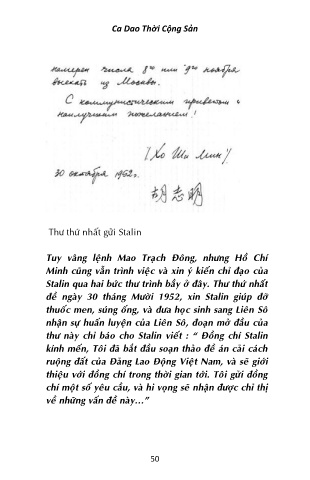 Ca Dao Thời Cộng Sản
намерен числа 8го или 9го ноября
выехать из Москвы.
С коммунистическим приветом и
наилучшим пожеланием!
/Хо Ши Мин/
30 октября 1952г.
胡志明
Thư thứ nhất gửi Stalin
Tuy vâng lệnh Mao Trạch Đông, nhưng Hồ Chí
Minh cũng vẫn trình việc và xin ý kiến chỉ đạo của
Stalin qua hai bức thư trình bầy ở đây. Thư thứ nhất
đề ngày 30 tháng Mười 1952, xin Stalin giúp đỡ
thuốc men, súng ống, và đưa học sinh sang Liên Sô
nhận sự huấn luyện của Liên Sô, đoạn mở đầu của
thư này chỉ báo cho Stalin viết : “ Đồng chí Stalin
kính mến, Tôi đã bắt đầu soạn thảo đề án cải cách
ruộng đất của Đảng Lao Động Việt Nam, và sẽ giới
thiệu với đồng chí trong thời gian tới. Tôi gửi đồng
chí một số yêu cầu, và hi vọng sẽ nhận được chỉ thị
về những vấn đề này…”
50